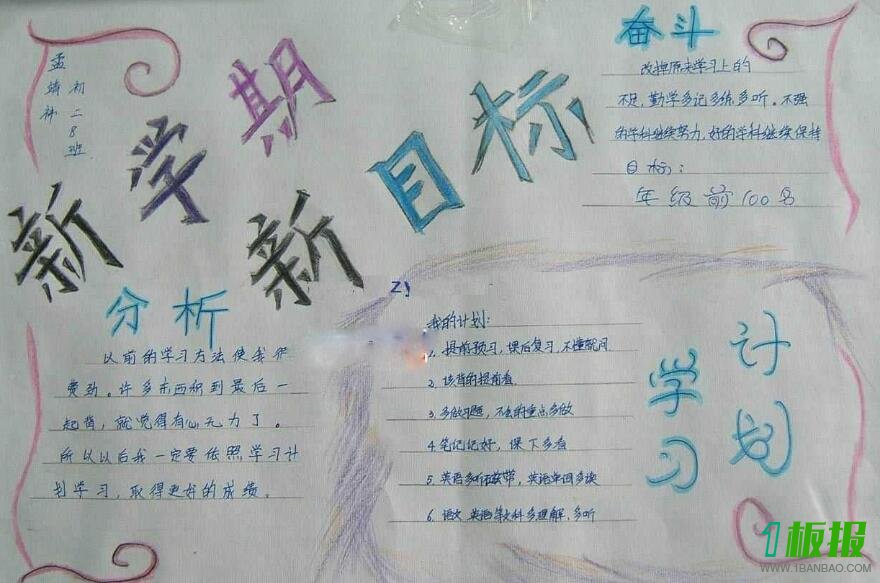 初二8班
新学期
新目标
奋斗
改掉原来学习上的
不足,勤学多记多练多听。不强
的学科继续努力,好的学科继续保持
目标:
年级前100名
分析
以前的学习方法使我很
费劲。许多东西积到最后一
起背,就觉得有心无力了。
所以以后我一定要依照学习计
划学习,取得更好的成绩。
学习
计划
我的计划:
1. 提前预习,课后复习,不懂就问
2. 该背的提前背
3. 多做习题,不会的重点多做
4. 笔记记好,课下多看
5. 英语多听磁带,英语单词多读
6. 语文 英语等文科多理解,多听
1板报
WWW.1BANBAO.COM